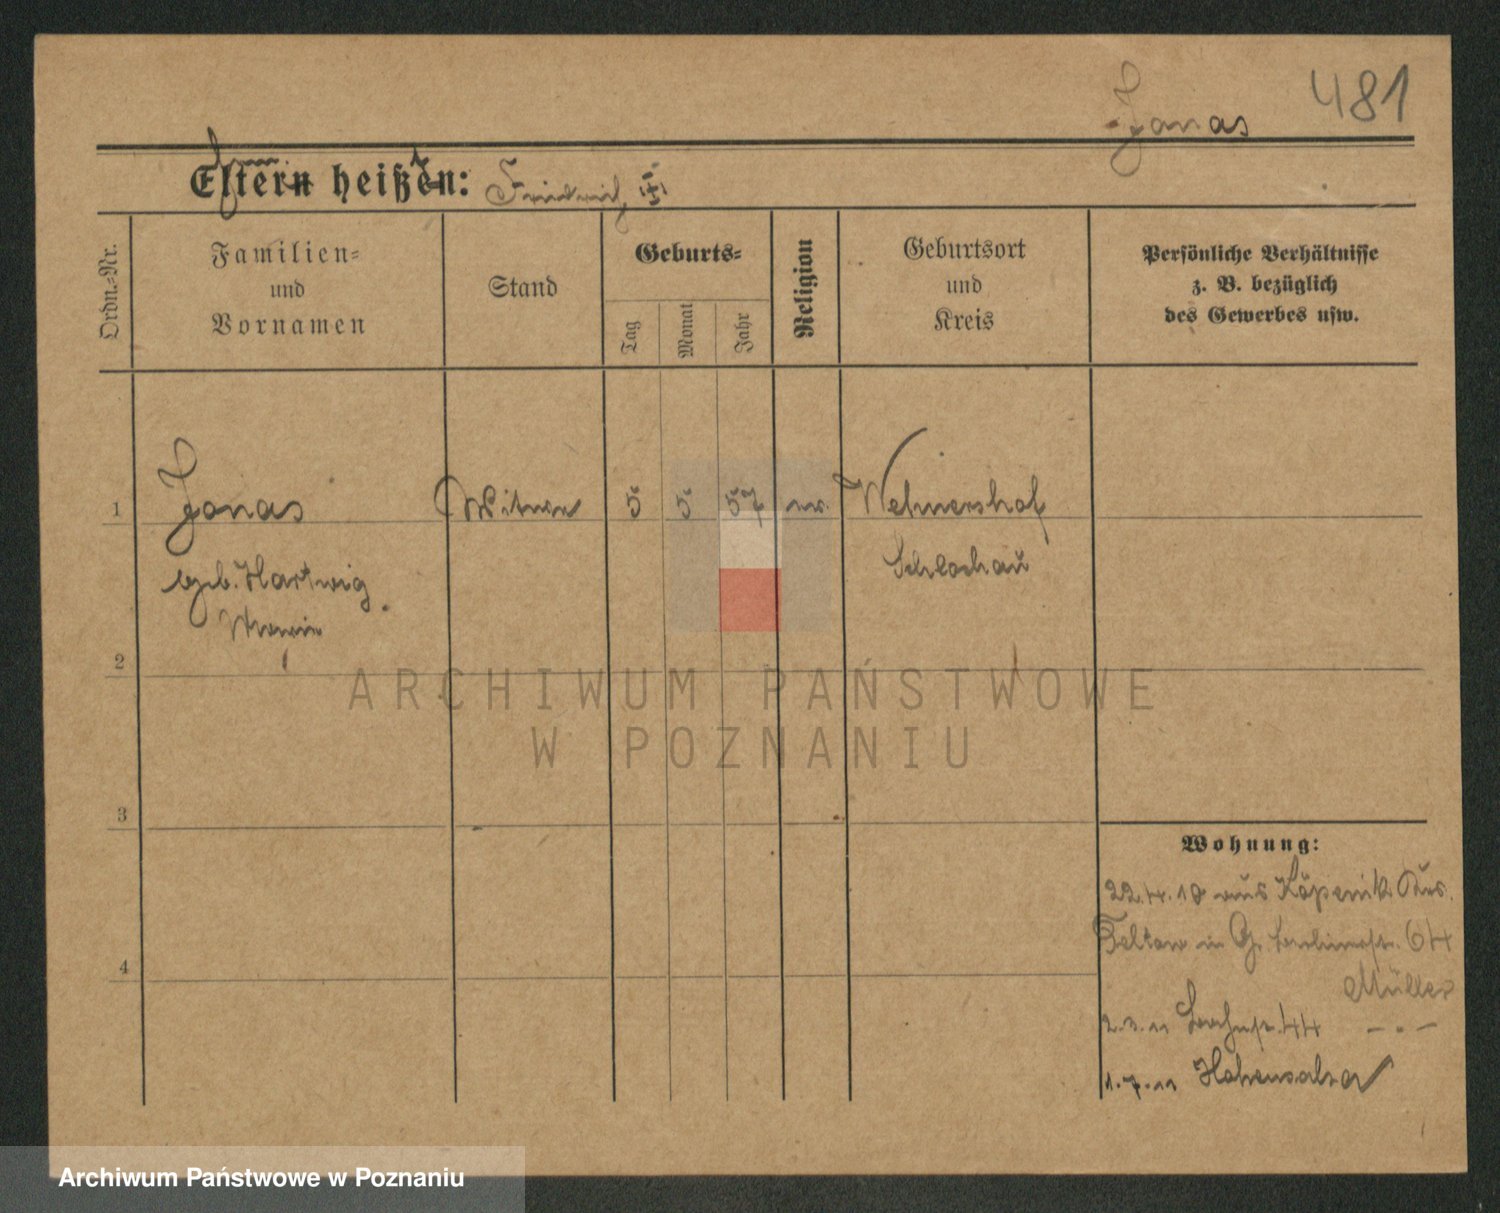 481
Jonas
Eltern heißen: Friedrich
Ordn.-Nr.
Familien-
und
Vornamen
Stand
Geburts-
Tag
Monat
Jahr
Religion
Geburtsort
und
Kreis
Persönliche Verhältnisse
z. B. bezüglich
des Gewerbes usw.
1
Jonas
Witwe
5
5
57
ev.
Wehnershof
geb. Hartwig
Schlochau
2
ARCHIWUM PAŃSTWOWE
W POZNANIU
3
Wohnung:
22.4.10 aus Köpenik Krs.
4
Teltow in 64
Müller
2.3.11 44 – " –
1.7.11 Hohensalza
Archiwum Państwowe w Poznaniu